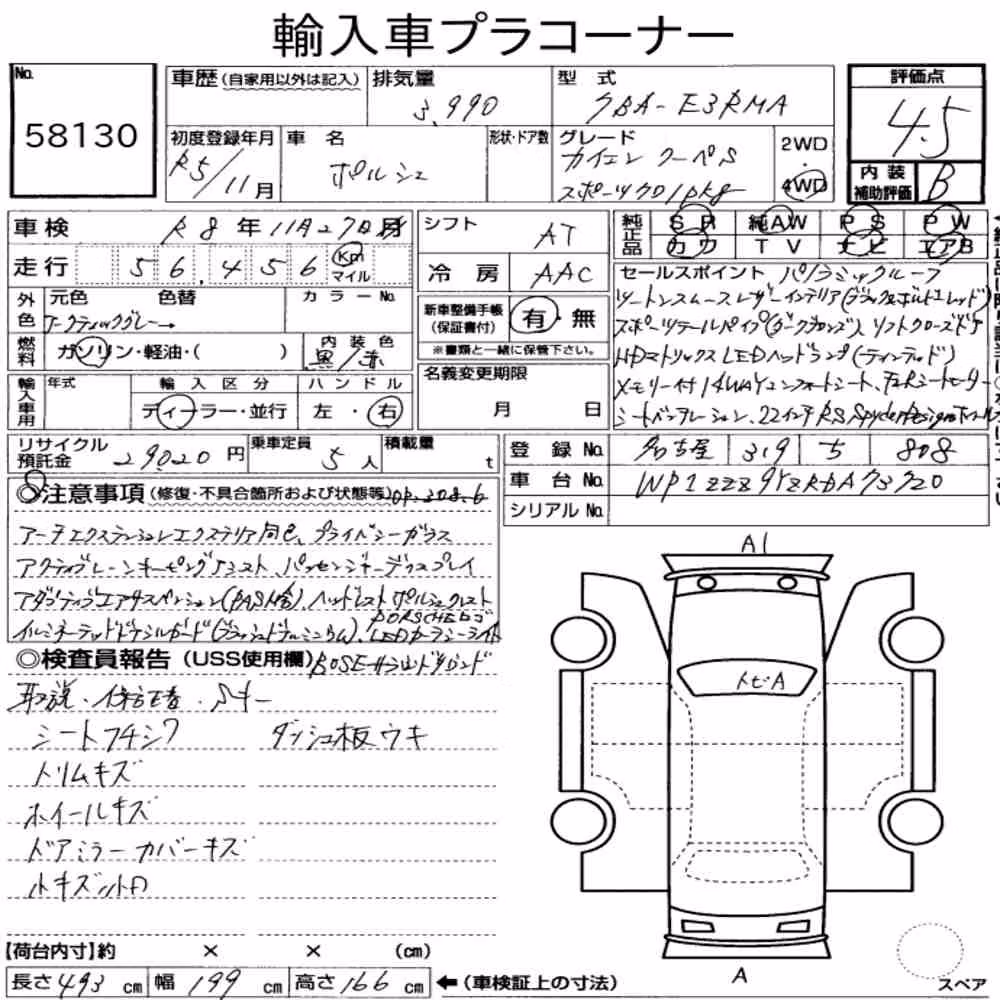 輸入車プラコーナー
No. 58130
車歴(自家用以外は記入) 排気量 3,990 型式 7BA-E3RMA
評価点 4.5
初度登録年月 R5/11月 車名 ポルシェ 形状・ドア数 グレード カイエン クーペS
スポーツクロノpkg 2WD・4WD
内装補助評価 B
車検 R8年11月27日
走行 56,456 Km マイル
シフト AT
冷房 AAC
純正品 SR 純AW PS PW
カワ TV ナビ エアB
外色 元色 色替 カラーNo.
アークティックグレー→
燃料 ガソリン・軽油・( ) 内装色 黒/赤
新車整備手帳(保証書付) 有・無
※書類と一緒に保管下さい。
輸入車用 年式 輸入区分 ハンドル
ディーラー・並行 左・右
名義変更期限 月 日
セールスポイント パノラミックルーフ
ツートンスムースレザーインテリア(ブラック&ボルドーレッド)
スポーツテールパイプ(ダークブロンズ)ソフトクローズドア
HDマトリックスLEDヘッドランプ(ティンテッド)
メモリー付14WAYコンフォートシート、F&Rシートヒーター
シートベンチレーション、22インチRS Spyder Designホイール
リサイクル預託金 29,020円 乗車定員 5人 積載量 t
登録No. 名古屋 319 ち 808
車台No. WP1ZZZ9YZRDA73720
シリアルNo.
◎注意事項(修復・不具合箇所および状態等) OP.308.6
アーチエクステンションエクステリア同色、プライバシーガラス
アクティブレーンキーピングアシスト、パッセンジャーディスプレイ
アダプティブエアサスペンション(PASM含)、ヘッドレストポルシェクレスト
イルミネーテッドドアシルガード(ブラッシュドアルミニウム)、PORSCHEロゴLEDカーテシーライト
◎検査員報告(USS使用欄) BOSEサラウンドサウンド
取説・保証書・Sキー
シートフチシワ ダッシュ板ウキ
トリムキズ
ホイールキズ
ドアミラーカバーキズ
小キズ凹
A1
トビA
A
【荷台内寸】約 × × (cm)
長さ 493 cm 幅 199 cm 高さ 166 cm ←(車検証上の寸法)
スペア